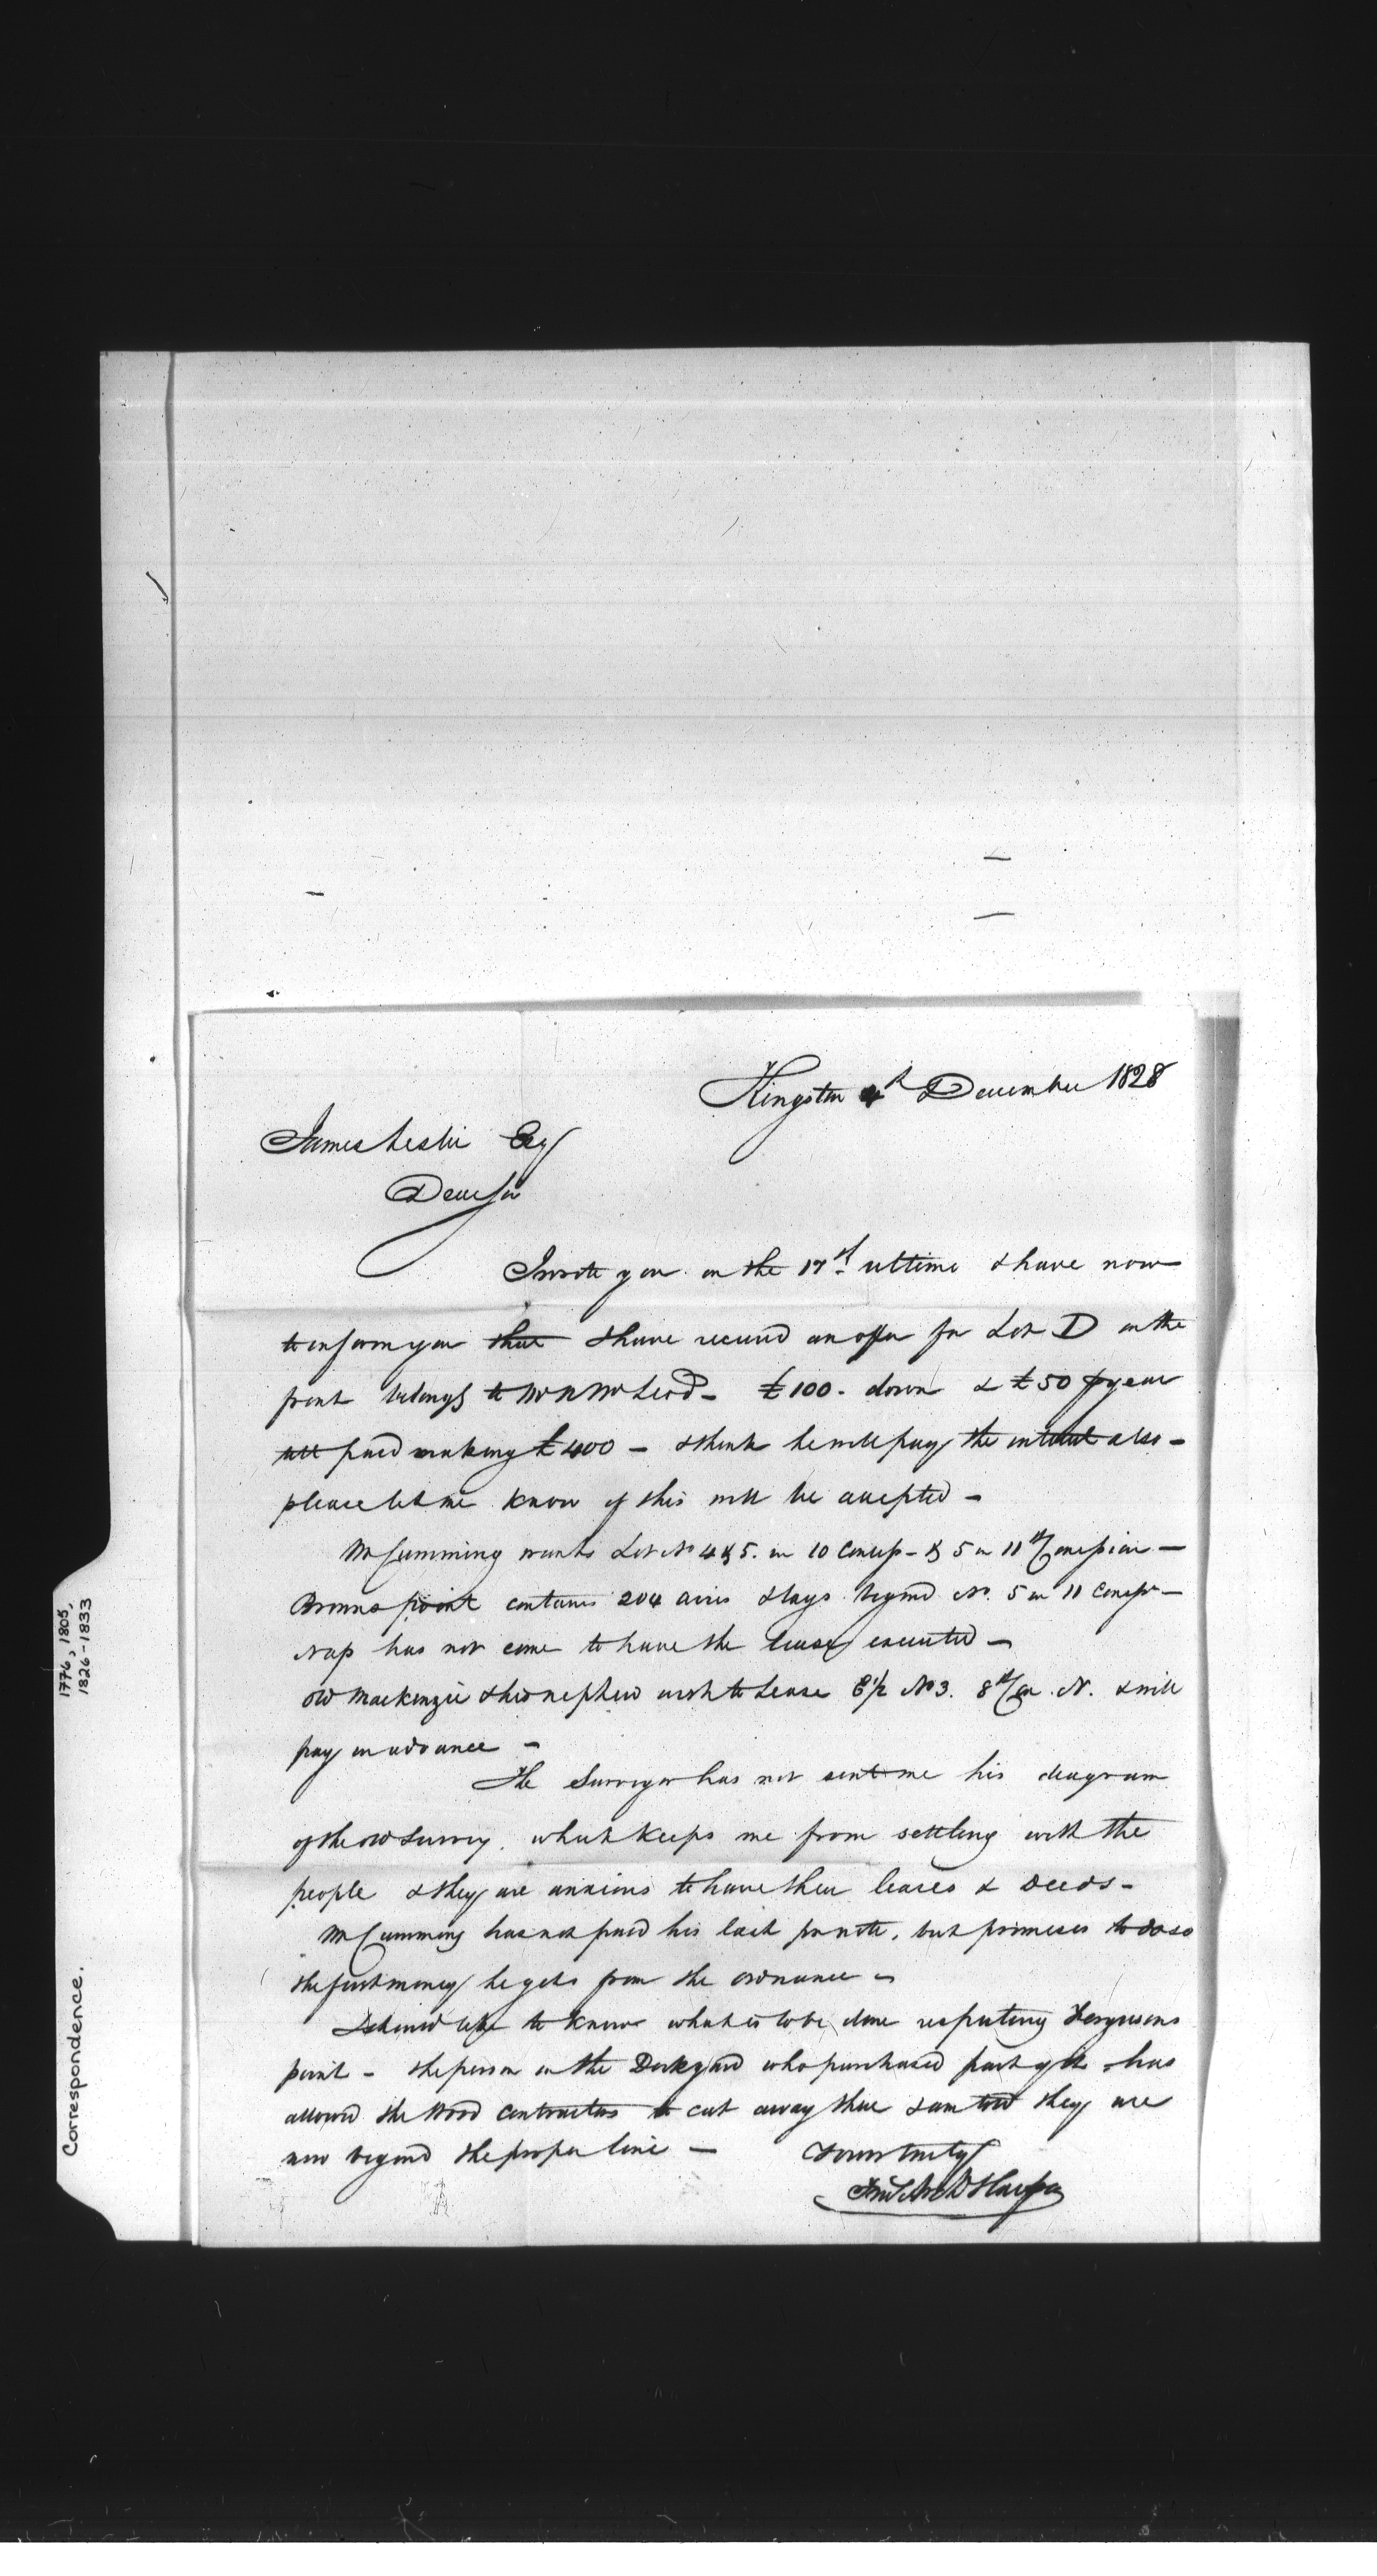 Kingston 4th December 1828
James Leslie Esqr
Dear Sir
I wrote you on the 17th ultimo & have now
to inform you that I have received an offer for Lot D on the
front belongg to Mr McLeod - £100 - down & £50 pr year
till paid making £400 - I think he will pay the interest also -
please let me know if this will be accepted -
Mr Cumming wants Lot No 4 & 5. in 10 Concess - & 5 in 11th Concession -
Browns point contains 204 acres & lays beyond No. 5 in 11 Concess -
has not come to have the lease executed -
Old Mackenzie & his nephew wish to Lease E½ No 3. 8th Con. N. & will
pay in advance -
The Surveyor has not sent me his diagram
of the old survey. which keeps me from settling with the
people & they are anxious to have their leases & deeds -
Mr Cumming has not paid his last note, but promises to do so
the first money he gets from the ordnance -
I should like to know what is to be done respecting Fergusons
point - the person in the Dockyard who purchased part of it - has
allowed the Wood contractors to cut away there & am told they are
now beyond the proper line -
Yours truly
Harper
Correspondence.
1776, 1805,
1826-1833